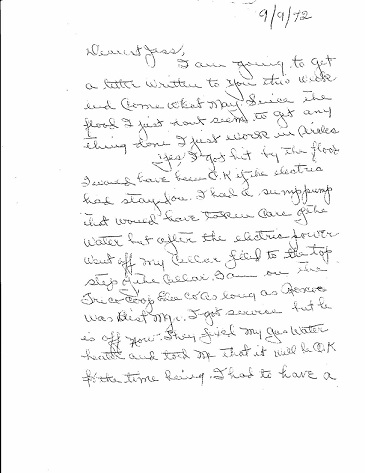 9/9/72
Dearest Jess,
I am going to get
a letter written to you this week
end come what may. Since the
flood I just dont seem to get any
thing done I just work in circles
Yes, I got hit by the flood
I would have been O.K if the electric
had stay on. I had a sump pump
that would have taken care of the
water but after the electric power
went off my cellar filed to the top
step of the cellar. I am on the
Tri Co Coop Elec Co as long as
was Dist Mgr. I got service but he
is off now. They fixed my gas water
heater and told me that it will be O.K
for the time being. I had to have a